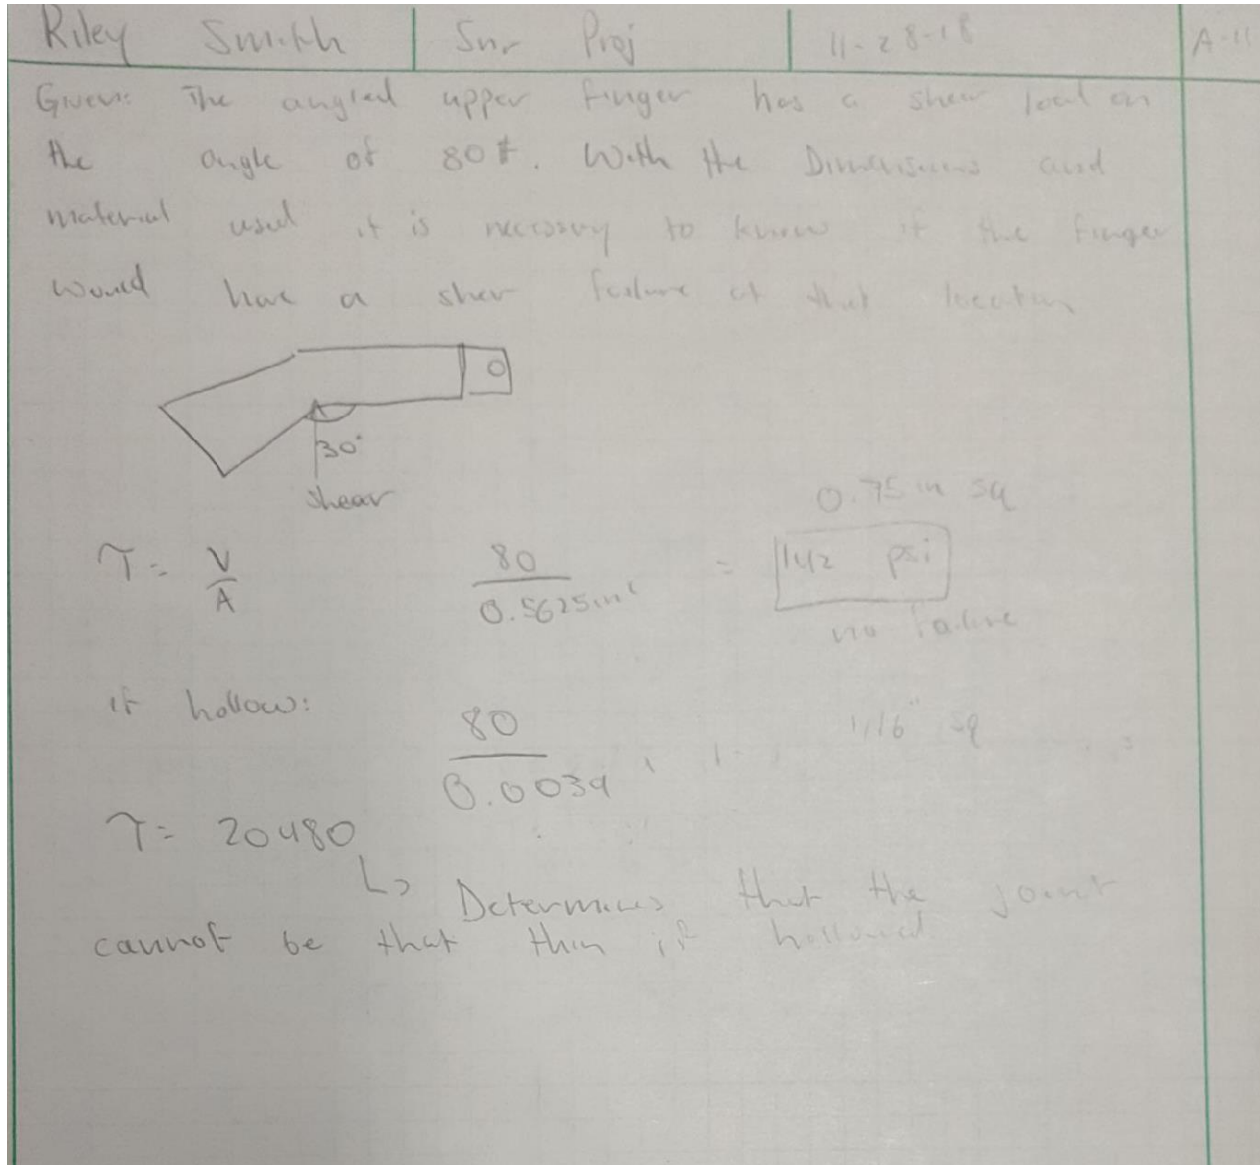 Riley Smith Snr Proj 11-28-18 A-11
Given: The angled upper finger has a shear load on
the angle of 80#. With the Dimensions and
material used it is necessary to know if the finger
would have a sher failure at that location
30°
shear
0.75 in sq
τ = V/A 80/0.5625in² = 142 psi
no failure
if hollow: 80/0.0039 1/16" sq
τ = 20480
↳ Determines that the joint
cannot be that thin if hollowed